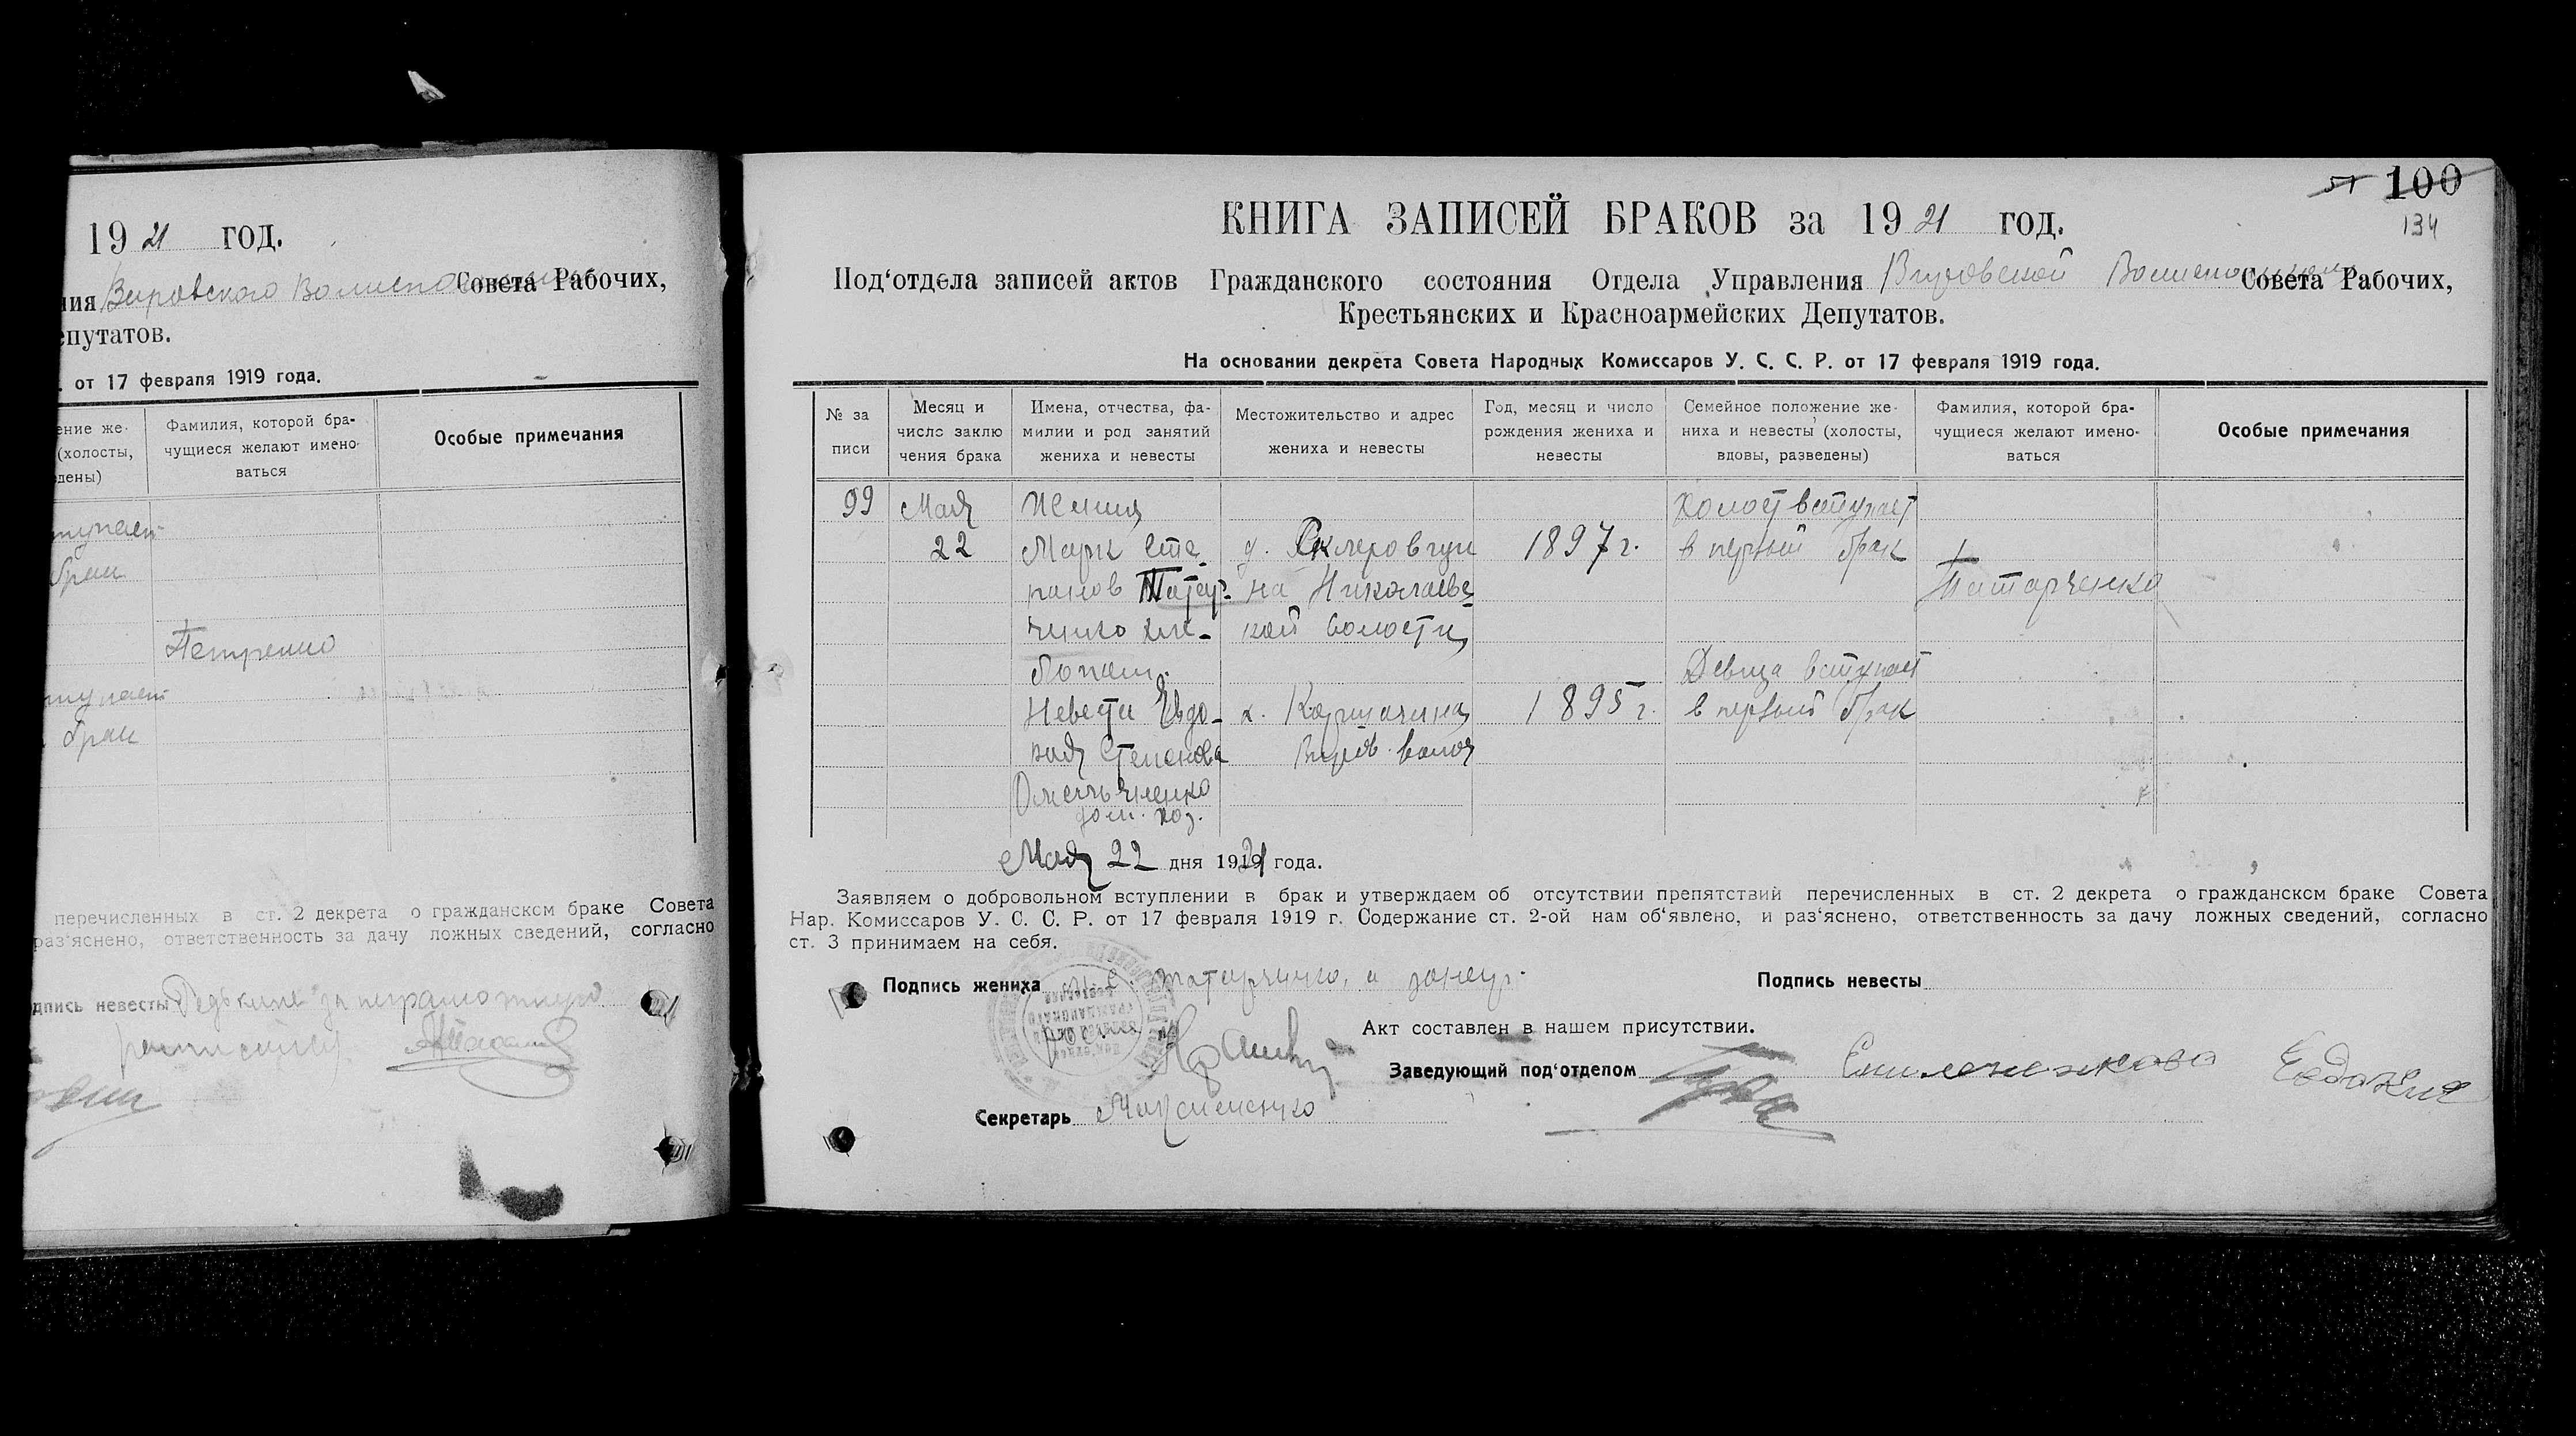 1921 год.
ния Вировского Волиспо Совета Рабочих,
епутатов.
. от 17 февраля 1919 года.
ение же-
(холосты,
дены)
Фамилия, которой бра-
чущиеся желают имено-
ваться
Особые примечания
тупает
брак
Петренко
тупает
брак
перечисленных в ст. 2 декрета о гражданском браке Совета
раз'яснено, ответственность за дачу ложных сведений, согласно
дпись невесты за неграмотную
51 100
КНИГА ЗАПИСЕЙ БРАКОВ за 1921 год.
134
Под'отдела записей актов Гражданского состояния Отдела Управления Вировской Совета Рабочих,
Крестьянских и Красноармейских Депутатов.
На основании декрета Совета Народных Комиссаров У. С. С. Р. от 17 февраля 1919 года.
№ за
писи
Месяц и
число заклю
чения брака
Имена, отчества, фа-
милии и род занятий
жениха и невесты
Местожительство и адрес
жениха и невесты
Год, месяц и число
рождения жениха и
невесты
Семейное положение же-
ниха и невесты (холосты,
вдовы, разведены)
Фамилия, которой бра-
чущиеся желают имено-
ваться
Особые примечания
99 Мая Жених Холост вступает
22 Марк Сте- д. 1897 г. в первый брак
панов Татар- на Николаевс- Татарченко
ченко хле- кой волости
бопаш. Девица вступает
Невеста Евдо- х. 1895 г. в первый брак
кия Степанова Виров. волос
Омельченко
дом. хоз.
Мая 22 дня 1921 года.
Заявляем о добровольном вступлении в брак и утверждаем об отсутствии препятствий перечисленных в ст. 2 декрета о гражданском браке Совета
Нар. Комиссаров У. С. С. Р. от 17 февраля 1919 г. Содержание ст. 2-ой нам об'явлено, и раз'яснено, ответственность за дачу ложных сведений, согласно
ст. 3 принимаем на себя.
Подпись жениха Татарченко, а Подпись невесты
Акт составлен в нашем присутствии.
Заведующий под'отделом Евдокия
Секретарь Максименко